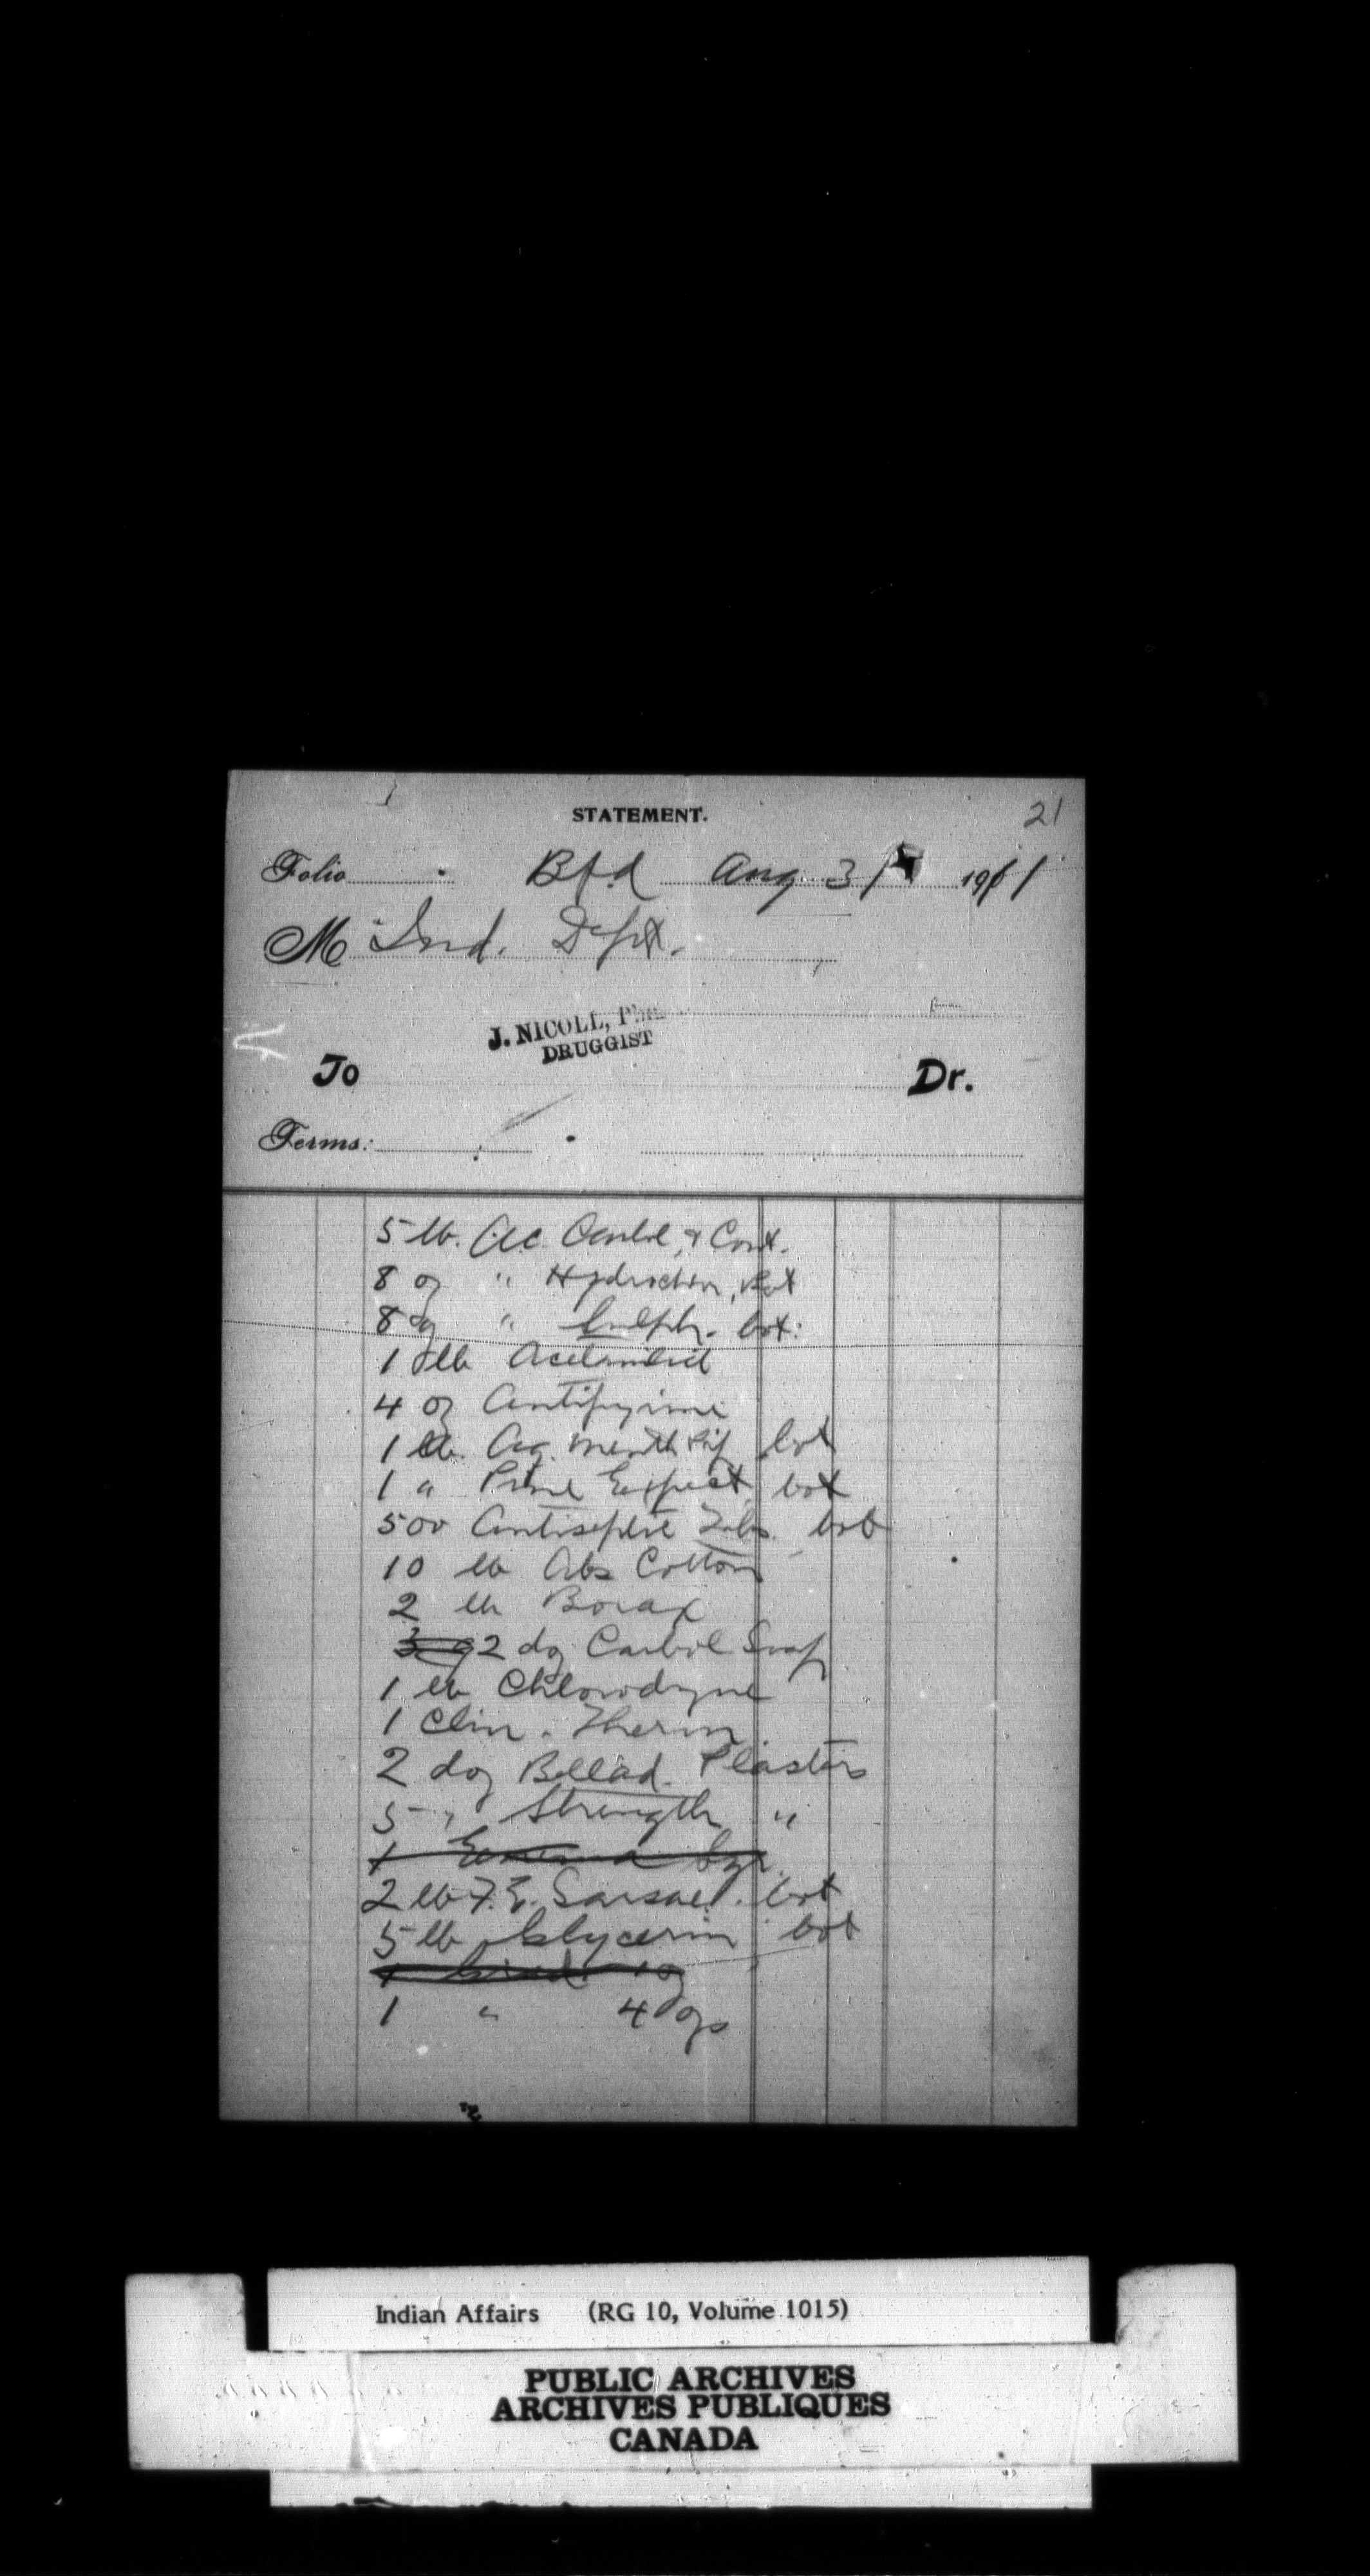 21
STATEMENT.
Folio Bfd Aug 31 1901
M Ind. Dept.
J. NICOLL,
DRUGGIST
To Dr.
Terms:
5 lb. Ac. Carbol & Cont.
8 oz " Hydrochlor, Bot
8 oz " Sulph. bot.
1 lb Acetanilid
4 oz Antipyrine
1 lb. Aq. Menth Pip bot
1 " Expect bot
500 Antiseptic Tabs. bot
10 lb Abs Cotton
2 lb Borax
2 doz Carbol Soap
1 lb Chlorodyne
1 Clin. Therm
2 doz Bellad. Plasters
5 " Strength "
1 Syr.
2 lb F. E. Sarsae. bot
5 lb Glycerin bot
1 " 4 ozs
Indian Affairs (RG 10, Volume 1015)
PUBLIC ARCHIVES
ARCHIVES PUBLIQUES
CANADA